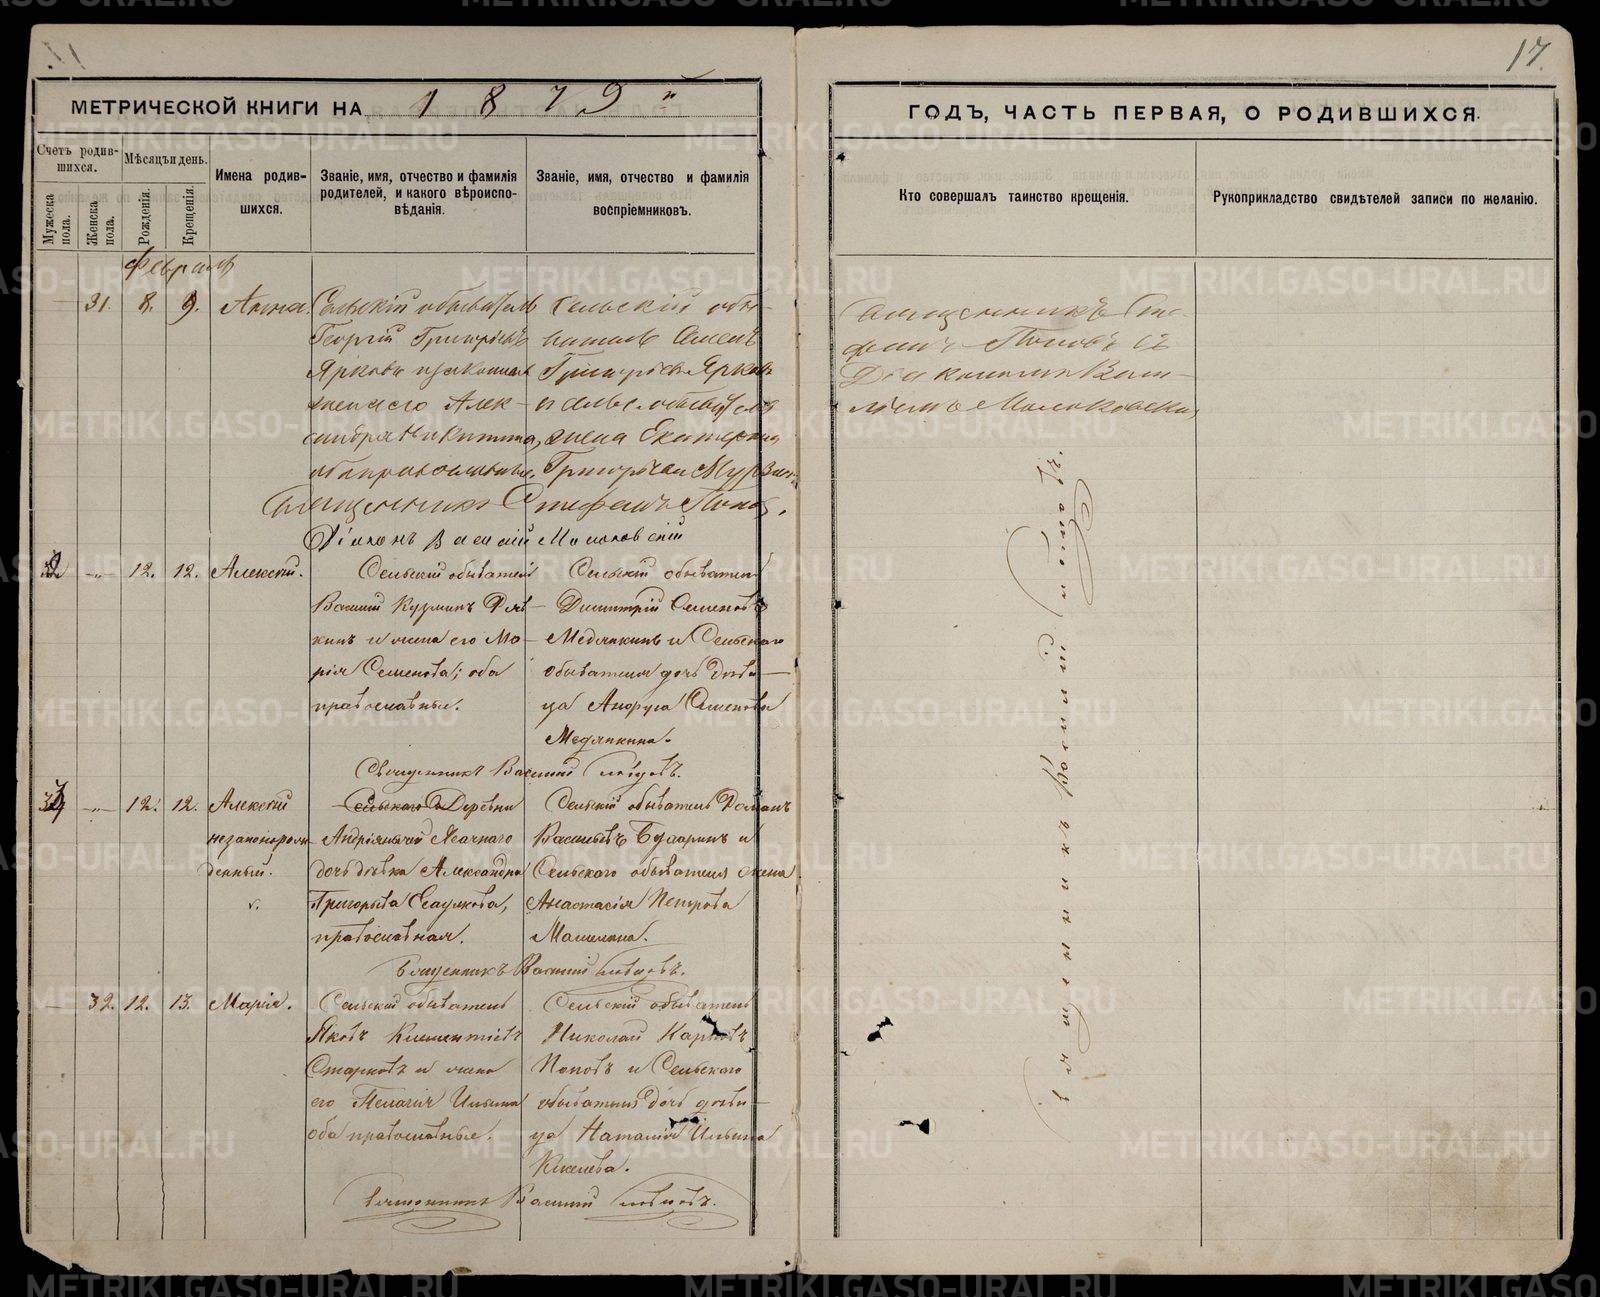 17.
МЕТРИЧЕСКОЙ КНИГИ НА 1879й
ГОДЪ, ЧАСТЬ ПЕРВАЯ, О РОДИВШИХСЯ.
Счетъ родив-
шихся.
Мѣсяцъ и день.
Мужеска пола.
Женска пола.
Рожденія.
Крещенія.
Имена родив-
шихся.
Званіе, имя, отчество и фамилія
родителей, и какого вѣроиспо-
вѣданія.
Званіе, имя, отчество и фамилія
воспріемниковъ.
Кто совершалъ таинство крещенія.
Рукоприкладство свидѣтелей записи по желанію.
Февраль
31. 8. 9. Анна
Сельскій обыватель
Георгій Григорьевъ
Ярковъ и законная
жена его Алек-
сандра Никитина,
оба православные.
Сельскій обы-
ватель Семенъ
Григорьевъ Ярковъ
и сельс. обывателя
жена Екатерина
Григорьева
Священникъ Сте-
фанъ Поповъ съ
Діакономъ Васи-
ліемъ
Священникъ Стефанъ Поповъ.
Діаконъ Василій
12. 12. Алексій.
Сельскій обыватель
Василій Кузминъ
и жена его Ма-
рія Семенова; оба
православные.
Сельскій обыватель
Димитрій Семеновъ
Медянкинъ и Сельскаго
обывателя дочь дѣви-
ца Семенова
Медянкина.
Священникъ Василій
12. 12. Алексій
незаконорож-
денный.
Деревни
дочь дѣвка Александра
Григорьева
православная.
Сельскій обыватель Романъ
Васильевъ и
Сельскаго обывателя жена
Анастасія Петрова
Священникъ Василій
32. 12. 13. Марія.
Сельскій обыватель
Яковъ Климентіевъ
Старковъ и жена
его Пелагія Ильина
оба православные.
Сельскій обыватель
Николай Карповъ
Поповъ и Сельскаго
обывателя дочь дѣви-
ца Наталія Ильина
Священникъ Василій
Священникъ Василій
METRIKI.GASO-URAL.RU